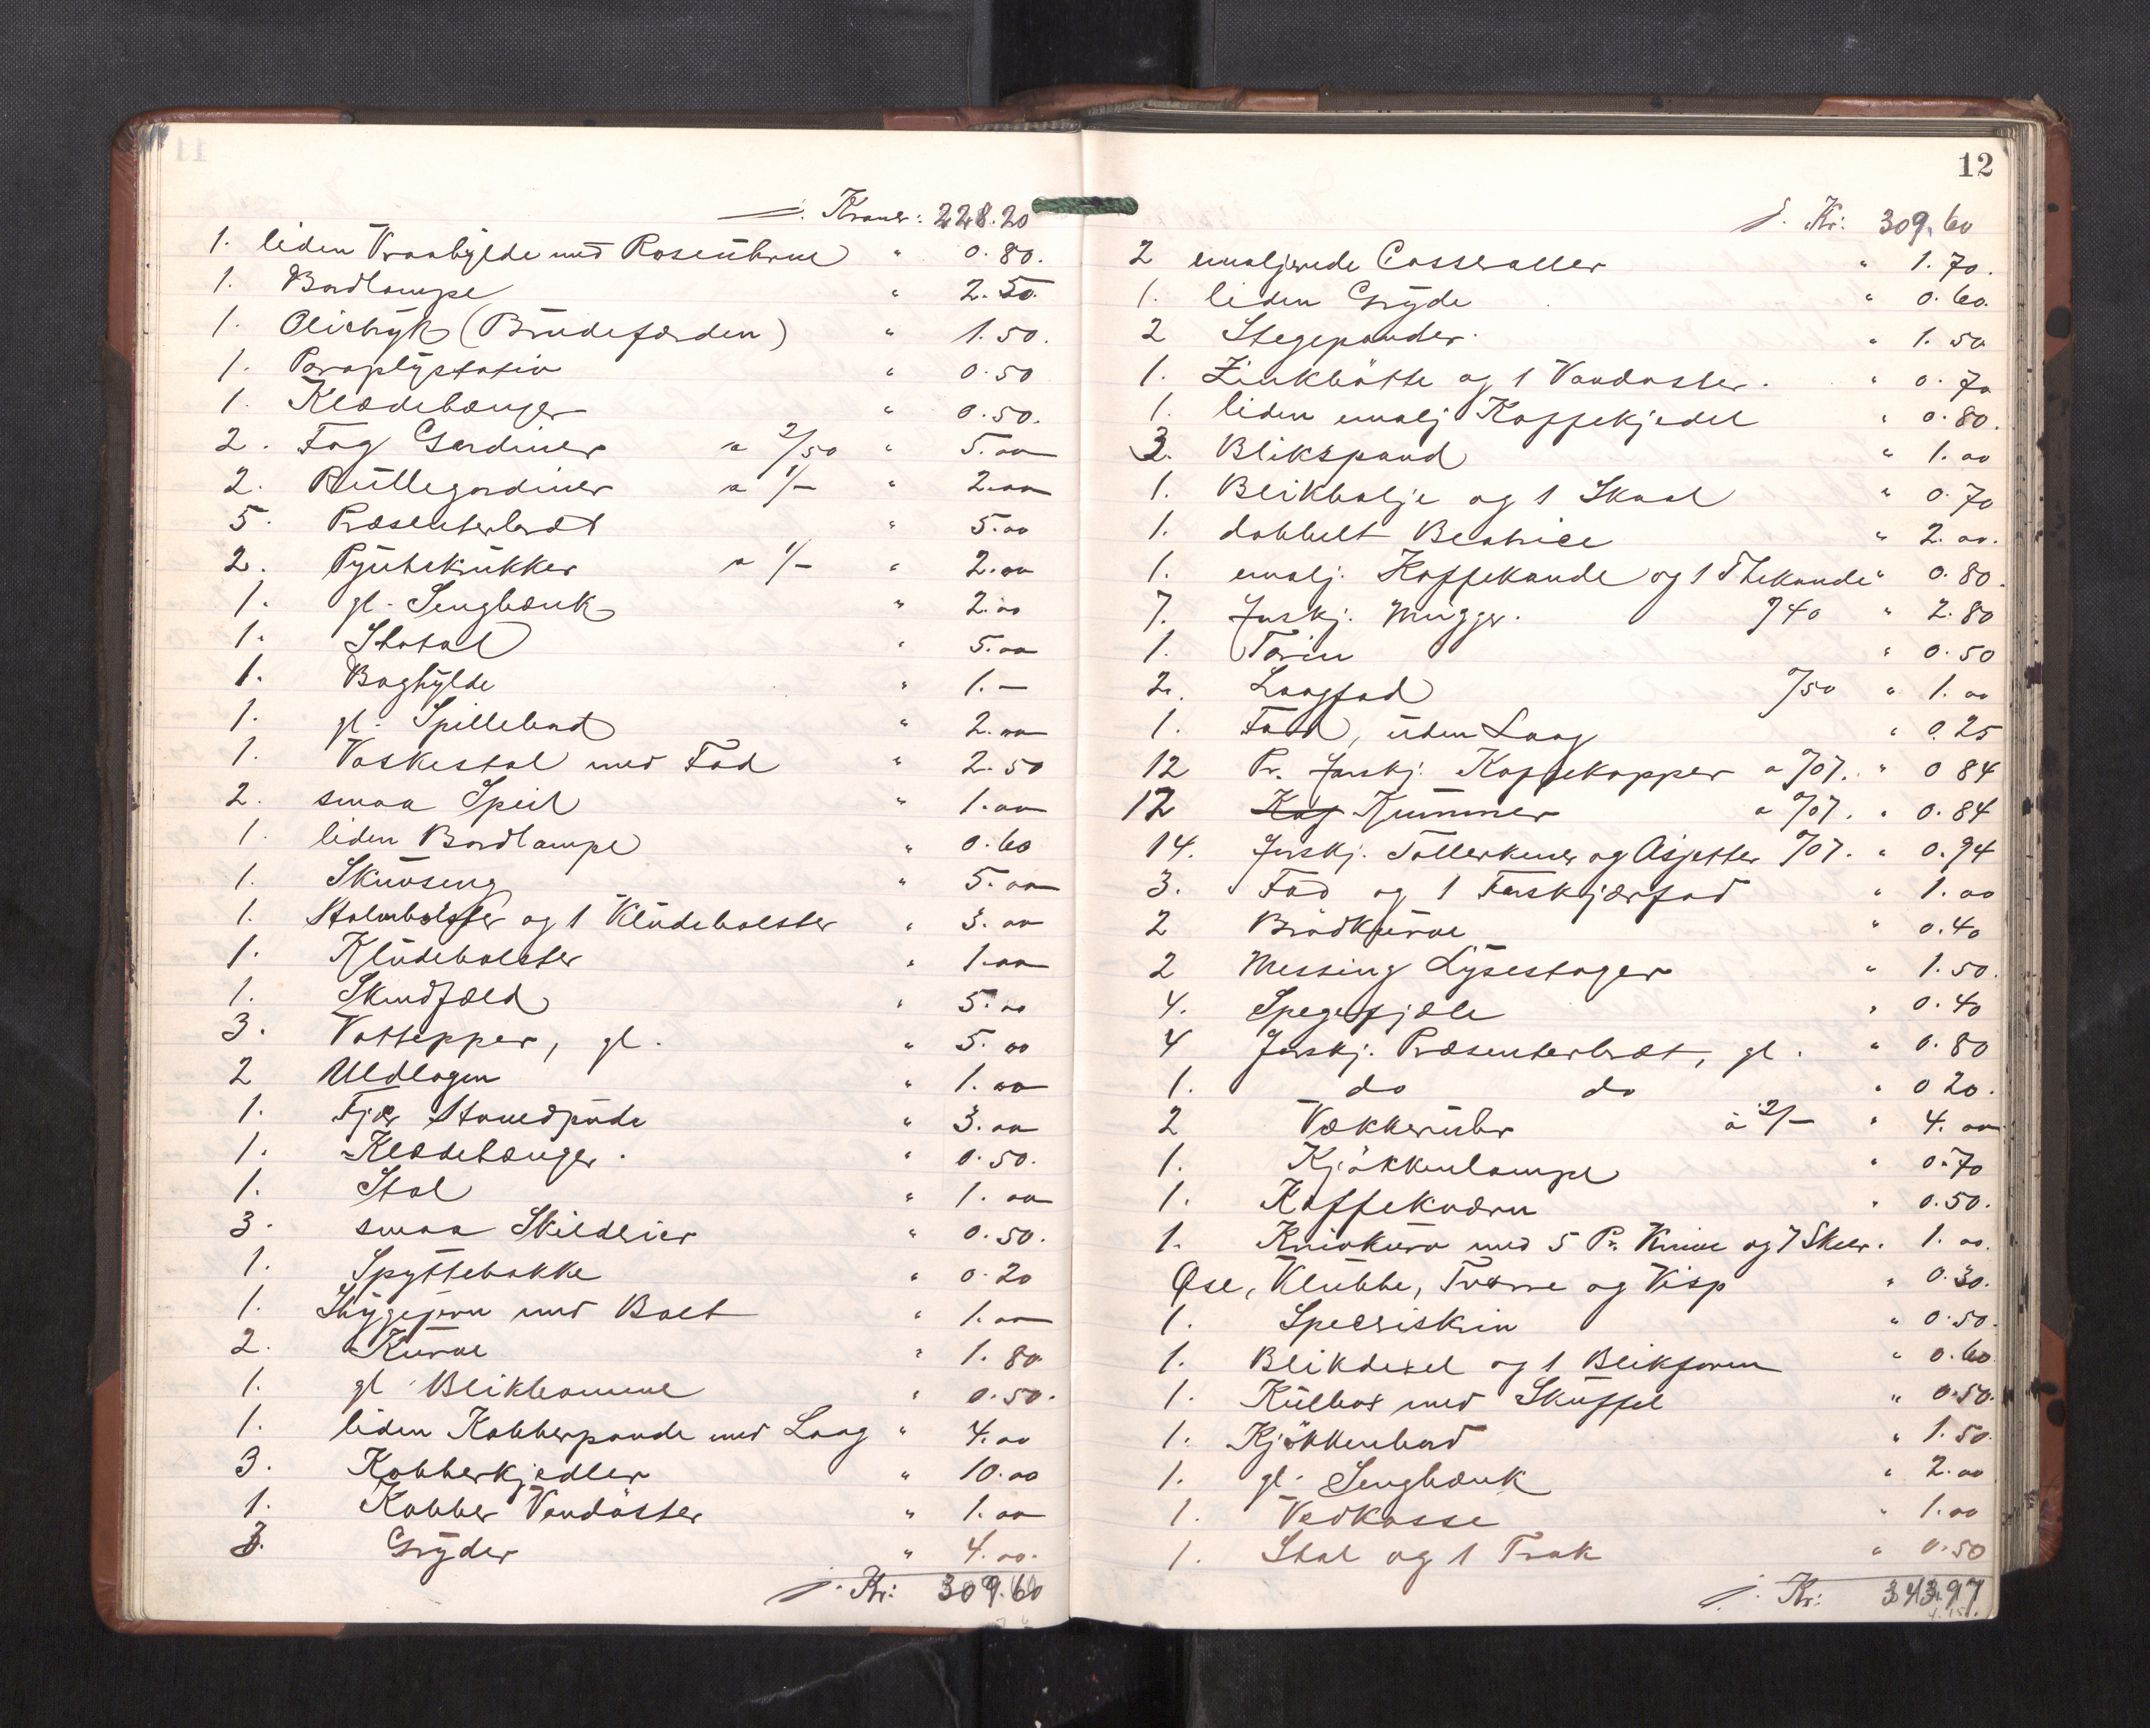 Kroner: 228.20
1. liden Vraahylde med Rosenkrone " 0.80.
1. Bordlampe " 2.50.
1. Olietryk (Brudefærden) " 1.50.
1. Paraplystativ " 0.50
1. Klædehænger " 0.50.
2. Fag Gardiner a 2/50 " 5.00
2. Rullegardiner a 1/- " 2.00
5. Præsenterbræt " 5.00
2. Pyntekrukker a 1/- " 2.00
1. gl. Sengbænk " 2.00
1. Stokol " 5.00
1. Boghylde " 1.-
1. gl. Spillebord " 2.00
1. Vaskestol med Fad " 2.50
2. smaa Speil " 1.00
1. liden Bordlampe " 0.60
1. Skuvseng " 5.00
1. Halmbolster og 1 Kludebolster " 3.00
1. Kludebolster " 1.00
1. Skindfæld " 5.00
3. Vattepper, gl. " 5.00
2 Uldlagen " 1.00
1. Fjær Hovedpude " 3.00
1. Klædehænger. " 0.50.
1. Stol " 1.00
3. smaa Skilderier " 0.50.
1. Spyttebakke " 0.20
1. Strygejern med Bolt " 1.00
2. Kurve " 1.80
1. gl Blikkomme " 0.50.
1. liden Kobberpande med Laag " 4.00
3. Kobberkjedler " 10.00
1. Kobber Vandöster " 1.00
3. Gryder " 4.00.
Kr: 309.60
12
Kr: 309.60
2 emaljerede Casseroller " 1.70.
1. liden Gryde " 0.60.
2 Stegepander. " 1.50
1. Zinkbøtte og 1 Vandøster. " 0.70
1. liden emalj Kaffekjedel " 0.80.
3. Blikspand " 1.00
1. Blikbalje og 1 Skaal " 0.70
1. dobbelt Beatrice " 2.00.
1. emalj. Kaffekande og 1 Thekande " 0.80.
7. forskj. Mugger. 0/40 " 2.80
1. Terin " 0.50
2. Laagfad 0/50 " 1.00
1. Fad, uden Laag " 0.25
12 Pr. forskj. Kaffekopper a 0/07. " 0 84
12 Kummer a 0/07. " 0.84
14. forskj. Tallerkener og Asjetter 0/07. " 0.94
3. Fad og 1 Forskjærfad " 1.00
2 Brödkurve " 0.40
2 Messing Lysestager " 1.50.
4. Spegefjæle " 0.40
4 forskj. Præsenterbræt, gl. " 0.80
1. do do " 0 20.
2 Vækkeruhr à 2/- " 4.00
1. Kjökkenlampe " 0.70
1. Kaffekværn " 0.50.
1. Knivkurv med 5 Pr. Knive og 7 Skeer. 1.00.
Øse, Klubbe, Tvære og Visp " 0.30.
1. Specriskrin " 0.50.
1. Blikdexel og 1 Blikform " 0.60
1. Kulbox med Skuffel " 0.50.
1. Kjökkenbord " 1.50.
1. gl. Sengbænk " 2.00
1. Vedkasse " 1.00
1. Stol og 1 Trak " 0.50
Kr: 343.97